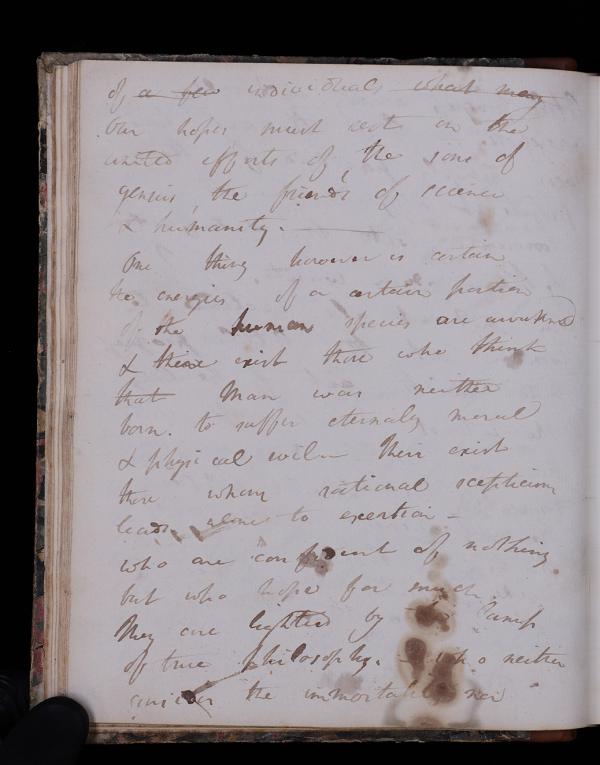 of a few individuals what many
Our hopes must rest on the
united efforts of the sons of
genius, the friends of science
& humanity. —
One thing however is certain
the energies of a certain portion
of the human species are awakened
& there exist those who think
that Man was neither
born to suffer eternally moral
& physical evil — There exist
those whom rational scepticism
leads alone to exertion —
who are confident of nothing
but who hope for much.
They are lighted by the lamp
of true philosophy. — who neither
consider the immortality nor